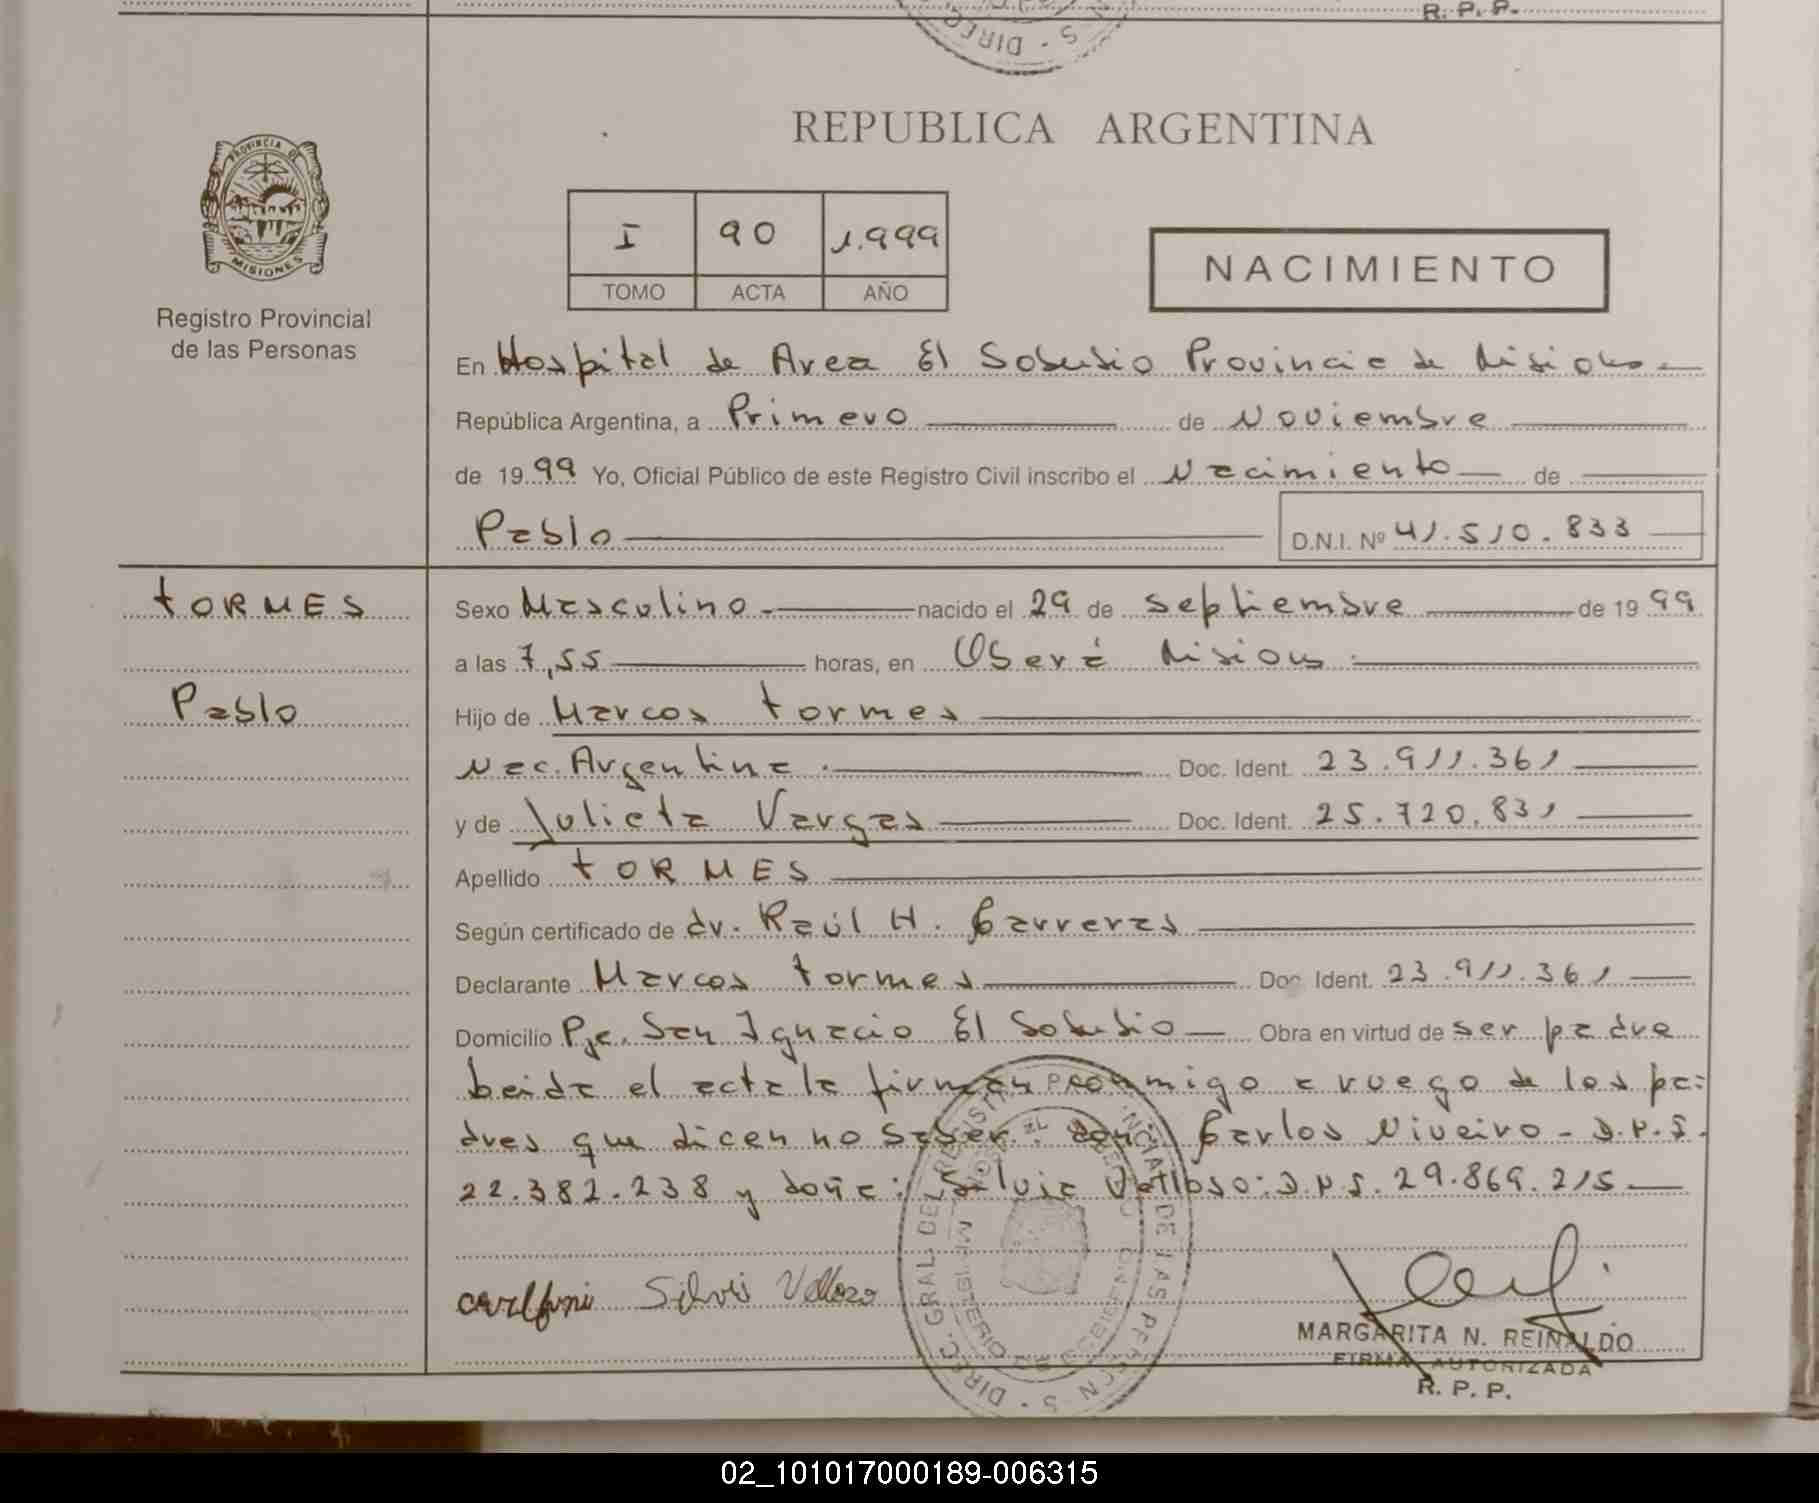 R. P. P.
S · DIREC
REPUBLICA ARGENTINA
PROVINCIA DE
MISIONES
I 90 1.999
TOMO ACTA AÑO
NACIMIENTO
Registro Provincial
de las Personas
En Hospital de Area El Soberbio Provincia de Misiones
República Argentina, a Primero de Noviembre
de 1999 Yo, Oficial Público de este Registro Civil inscribo el Nacimiento de
Pablo D.N.I. Nº 41.510.833
TORMES
Pablo
Sexo Masculino nacido el 29 de septiembre de 1999
a las 7,55 horas, en Oberá Misiones
Hijo de Marcos Tormes
Nac. Argentina Doc. Ident. 23.911.361
y de Julieta Vargas Doc. Ident. 25.720.831
Apellido TORMES
Según certificado de dr. Raúl H. Carreras
Declarante Marcos Tormes Doc. Ident. 23.911.361
Domicilio Pje. San Ignacio El Soberbio Obra en virtud de ser padre
leida el acta la firman conmigo a ruego de los pa=
dres que dicen no saber. don: Carlos Niveiro - D.N.I.
22.382.238 y doña: Silvia Velloso: D.N.I. 29.869.215
Silvia Vellozo
MARGARITA N. REINALDO
FIRMA AUTORIZADA
R. P. P.
02_101017000189-006315